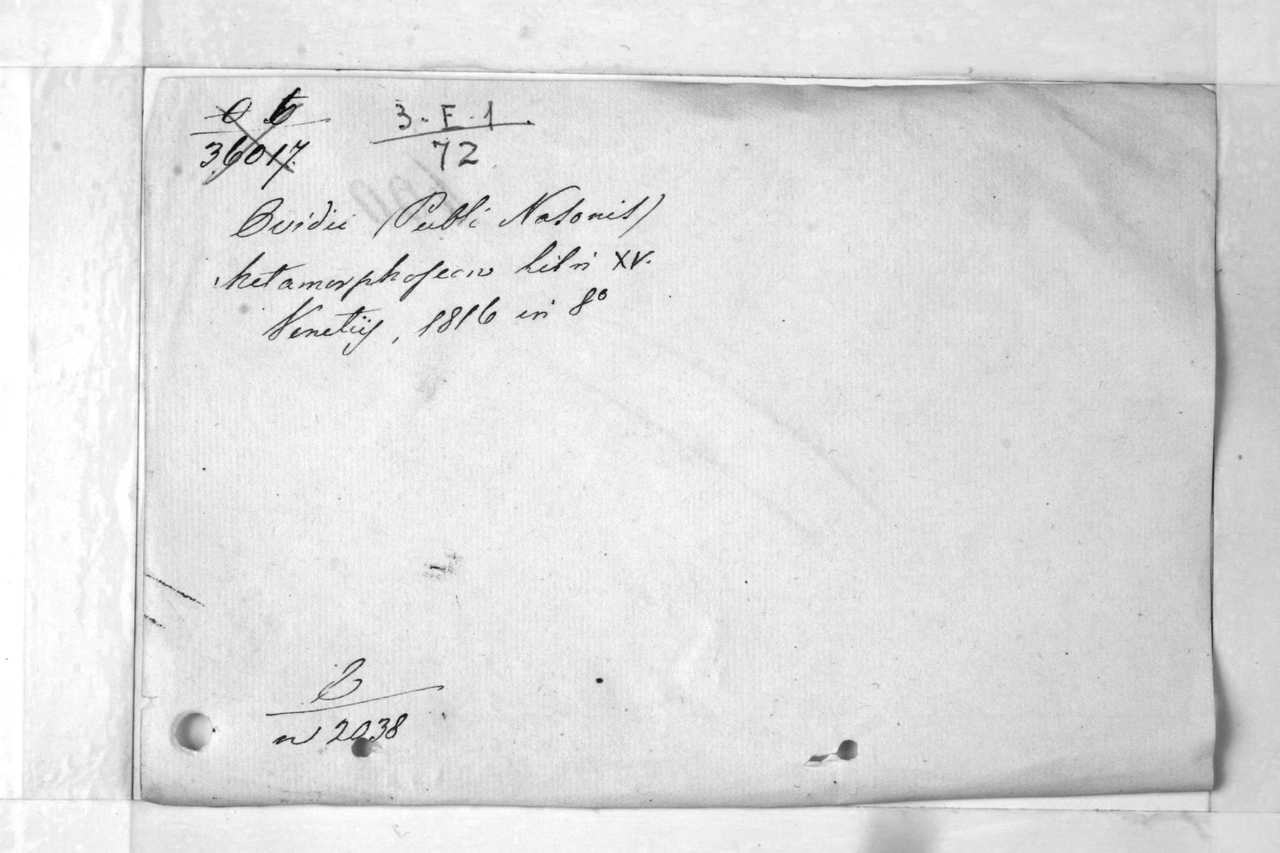 36017
3-E-1
72
Ovidii (Publi Nasonis)
Metamorphoseon libri XV.
Venetijs, 1816 in 8º
n 2038